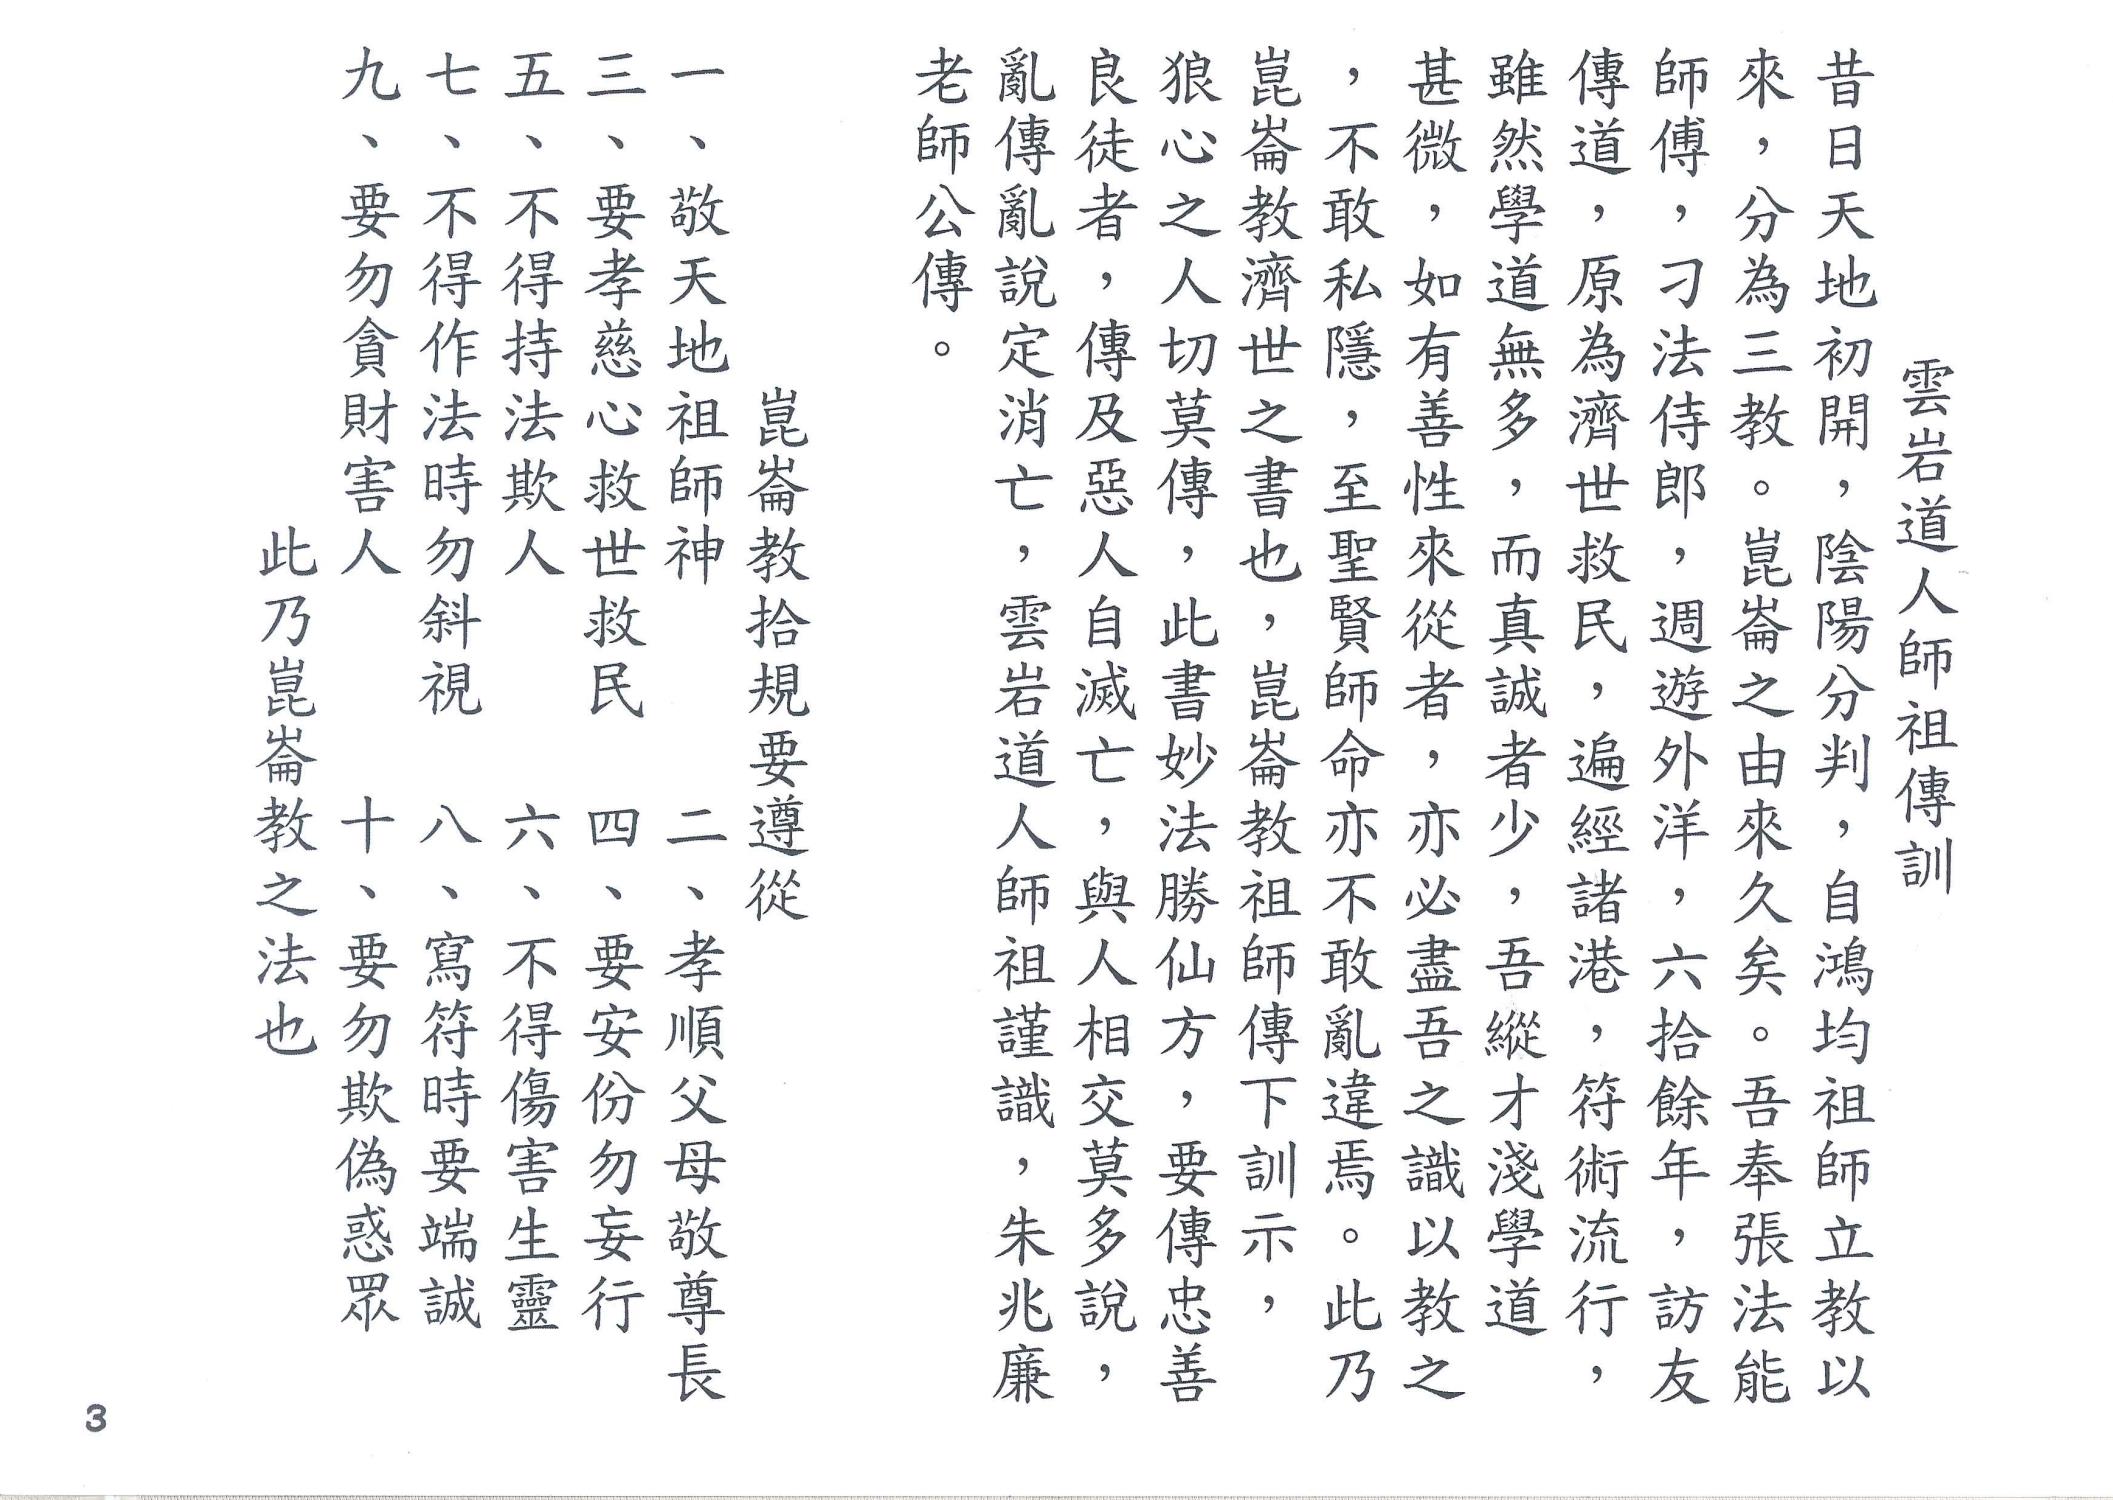 雲岩道人師祖傳訓
昔日天地初開，陰陽分判，自鴻均祖師立教以
來，分為三教。崑崙之由來久矣。吾奉張法能
師傅，刁法侍郎，週遊外洋，六拾餘年，訪友
傳道，原為濟世救民，遍經諸港，符術流行，
雖然學道無多，而真誠者少，吾縱才淺學道
甚微，如有善性來從者，亦必盡吾之識以教之
，不敢私隱，至聖賢師命亦不敢亂違焉。此乃
崑崙教濟世之書也，崑崙教祖師傳下訓示，
狼心之人切莫傳，此書妙法勝仙方，要傳忠善
良徒者，傳及惡人自滅亡，與人相交莫多說，
亂傳亂說定消亡，雲岩道人師祖謹識，朱兆廉
老師公傳。
崑崙教拾規要遵從
一、敬天地祖師神　二、孝順父母敬尊長
三、要孝慈心救世救民　四、要安份勿妄行
五、不得持法欺人　六、不得傷害生靈
七、不得作法時勿斜視　八、寫符時要端誠
九、要勿貪財害人　十、要勿欺偽惑眾
此乃崑崙教之法也
3